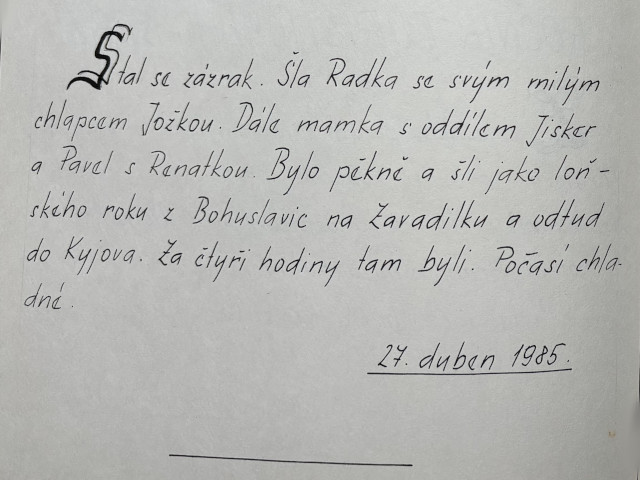 Stal se zázrak. Šla Radka se svým milým
chlapcem Jožkou. Dále mamka s oddílem Jisker
a Pavel s Renatkou. Bylo pěkně a šli jako loň-
ského roku z Bohuslavic na Zavadilku a odtud
do Kyjova. Za čtyři hodiny tam byli. Počasí chla-
dné.
27. duben 1985.